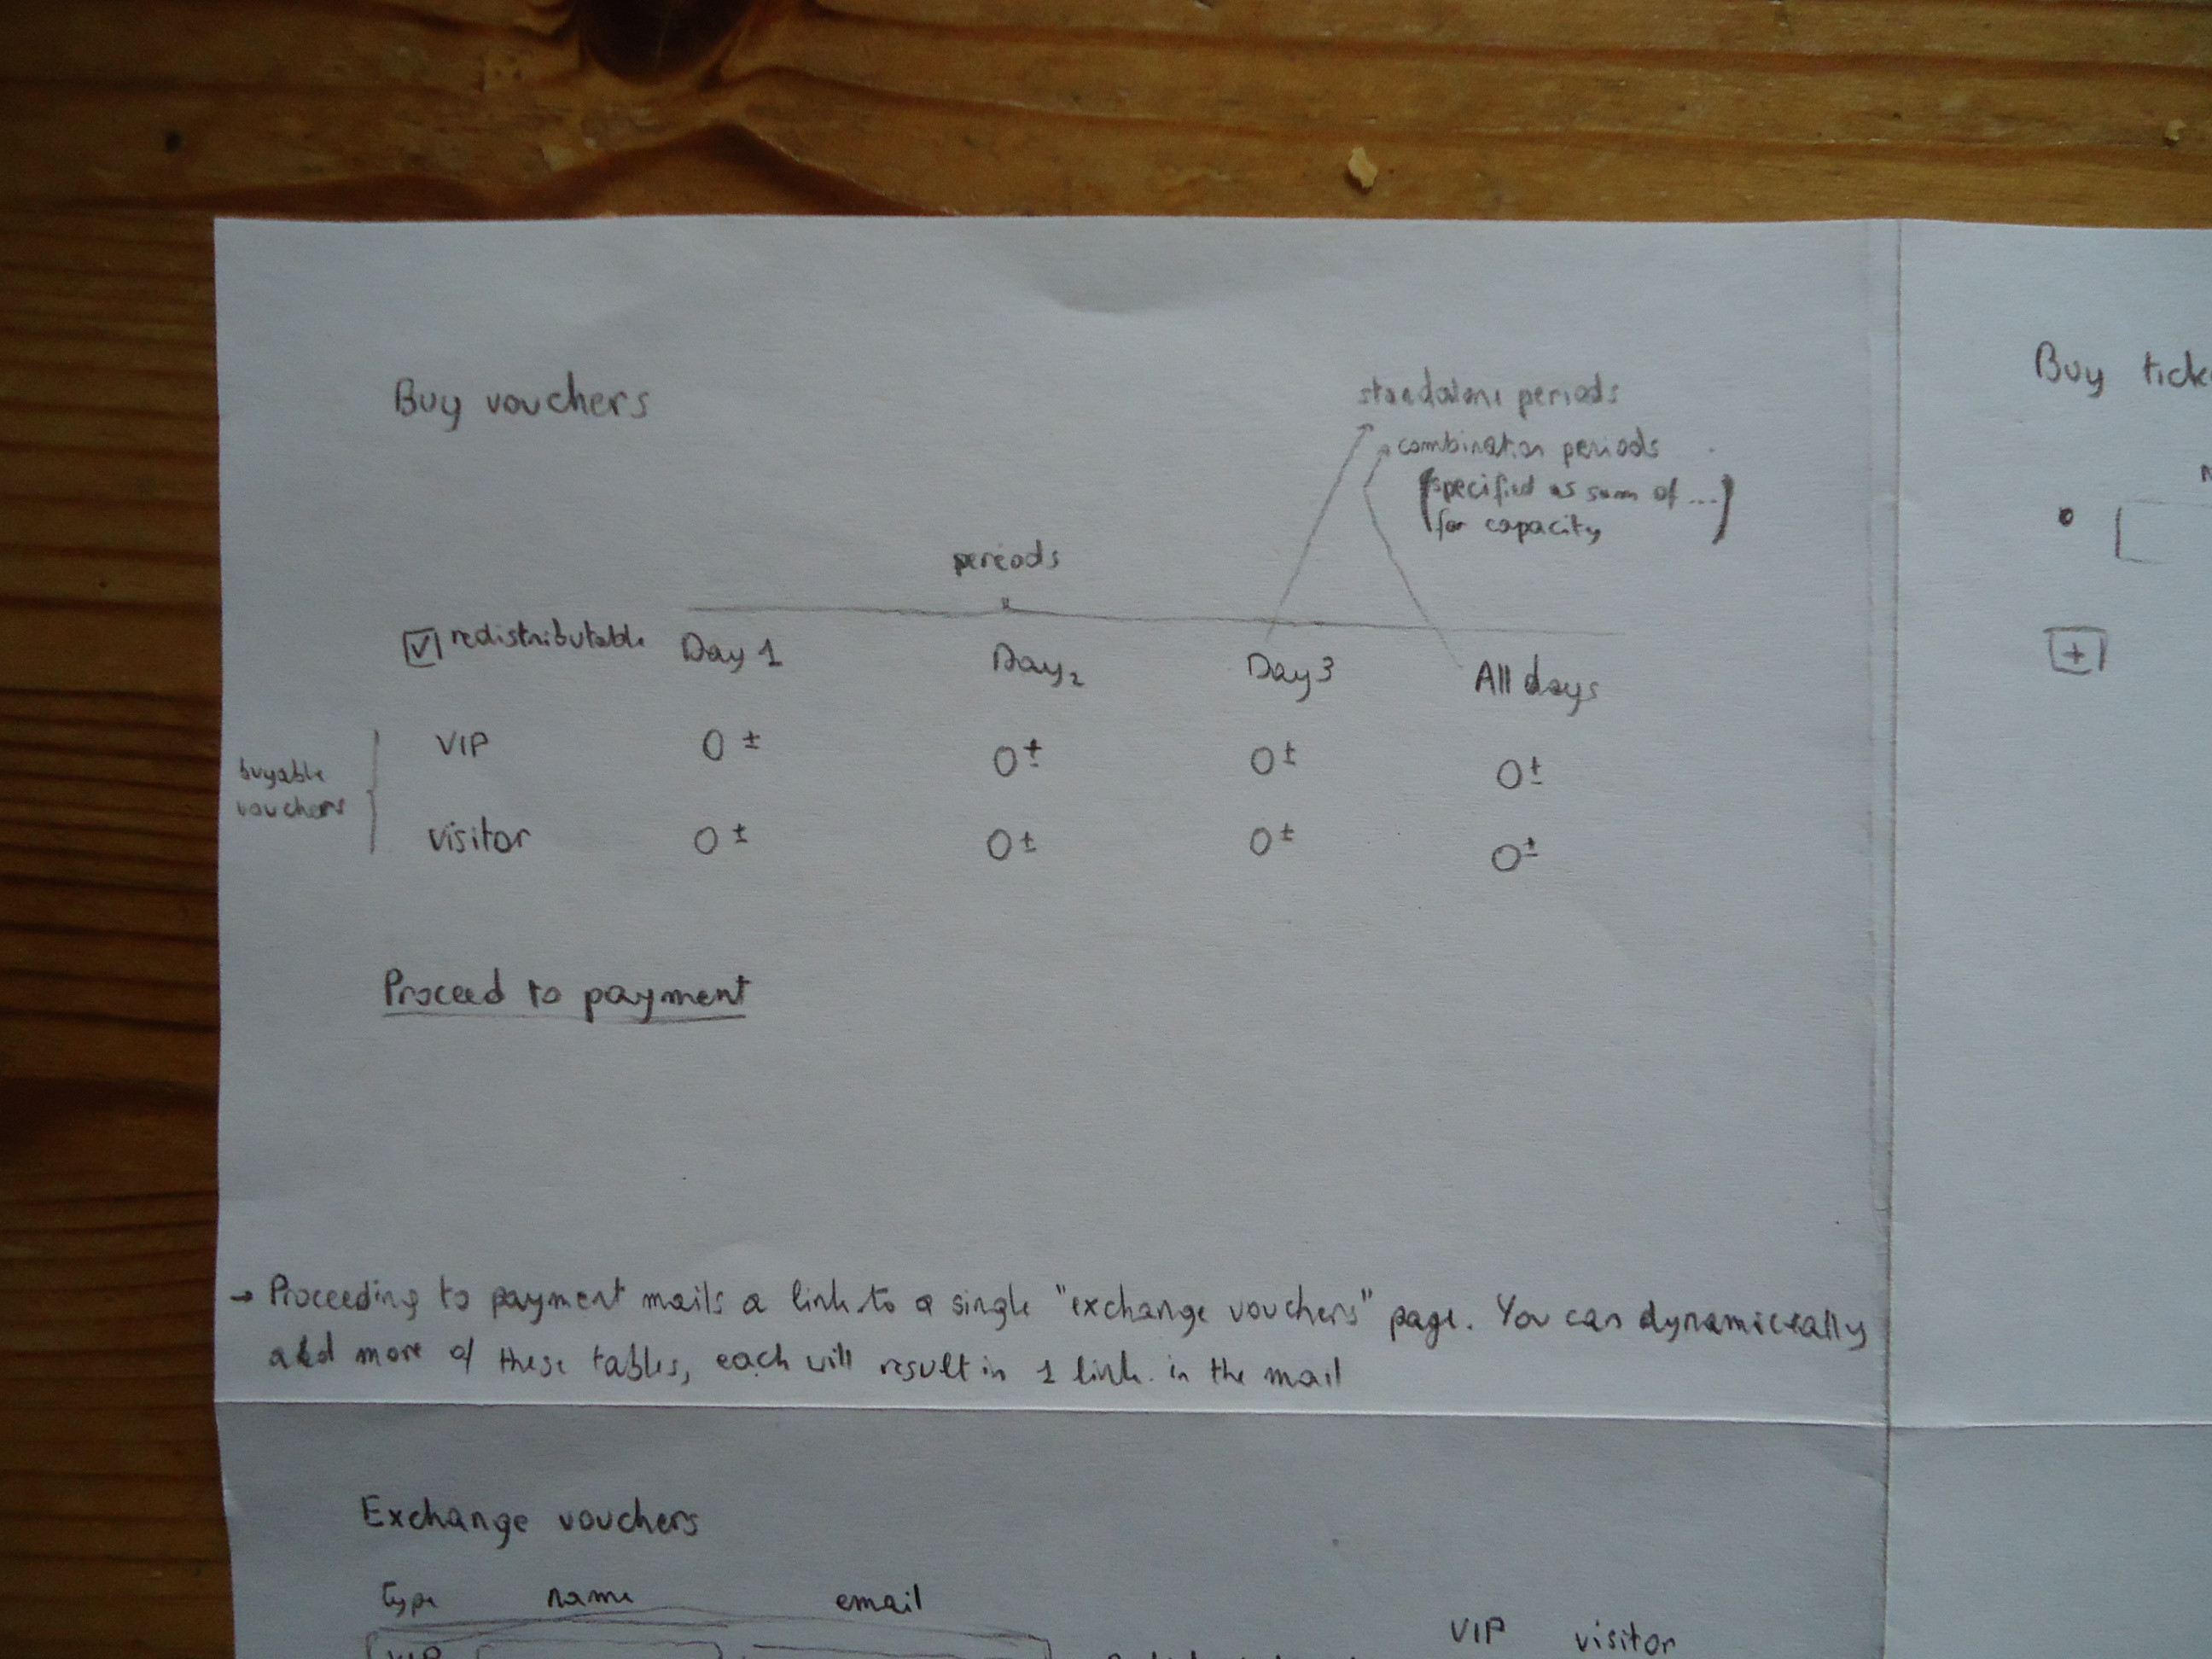 Buy vouchers
standalone periods
combination periods
(specified as sum of ...)
for capacity
periods
redistributable Day 1 Day 2 Day 3 All days
buyable
vouchers
VIP 0 ± 0 ± 0 ± 0 ±
visitor 0 ± 0 ± 0 ± 0 ±
Proceed to payment
→ Proceeding to payment mails a link to a single "exchange vouchers" page. You can dynamically
add more of these tables, each will result in 1 link in the mail
Exchange vouchers
type name email
VIP visitor
VIP
Buy
+